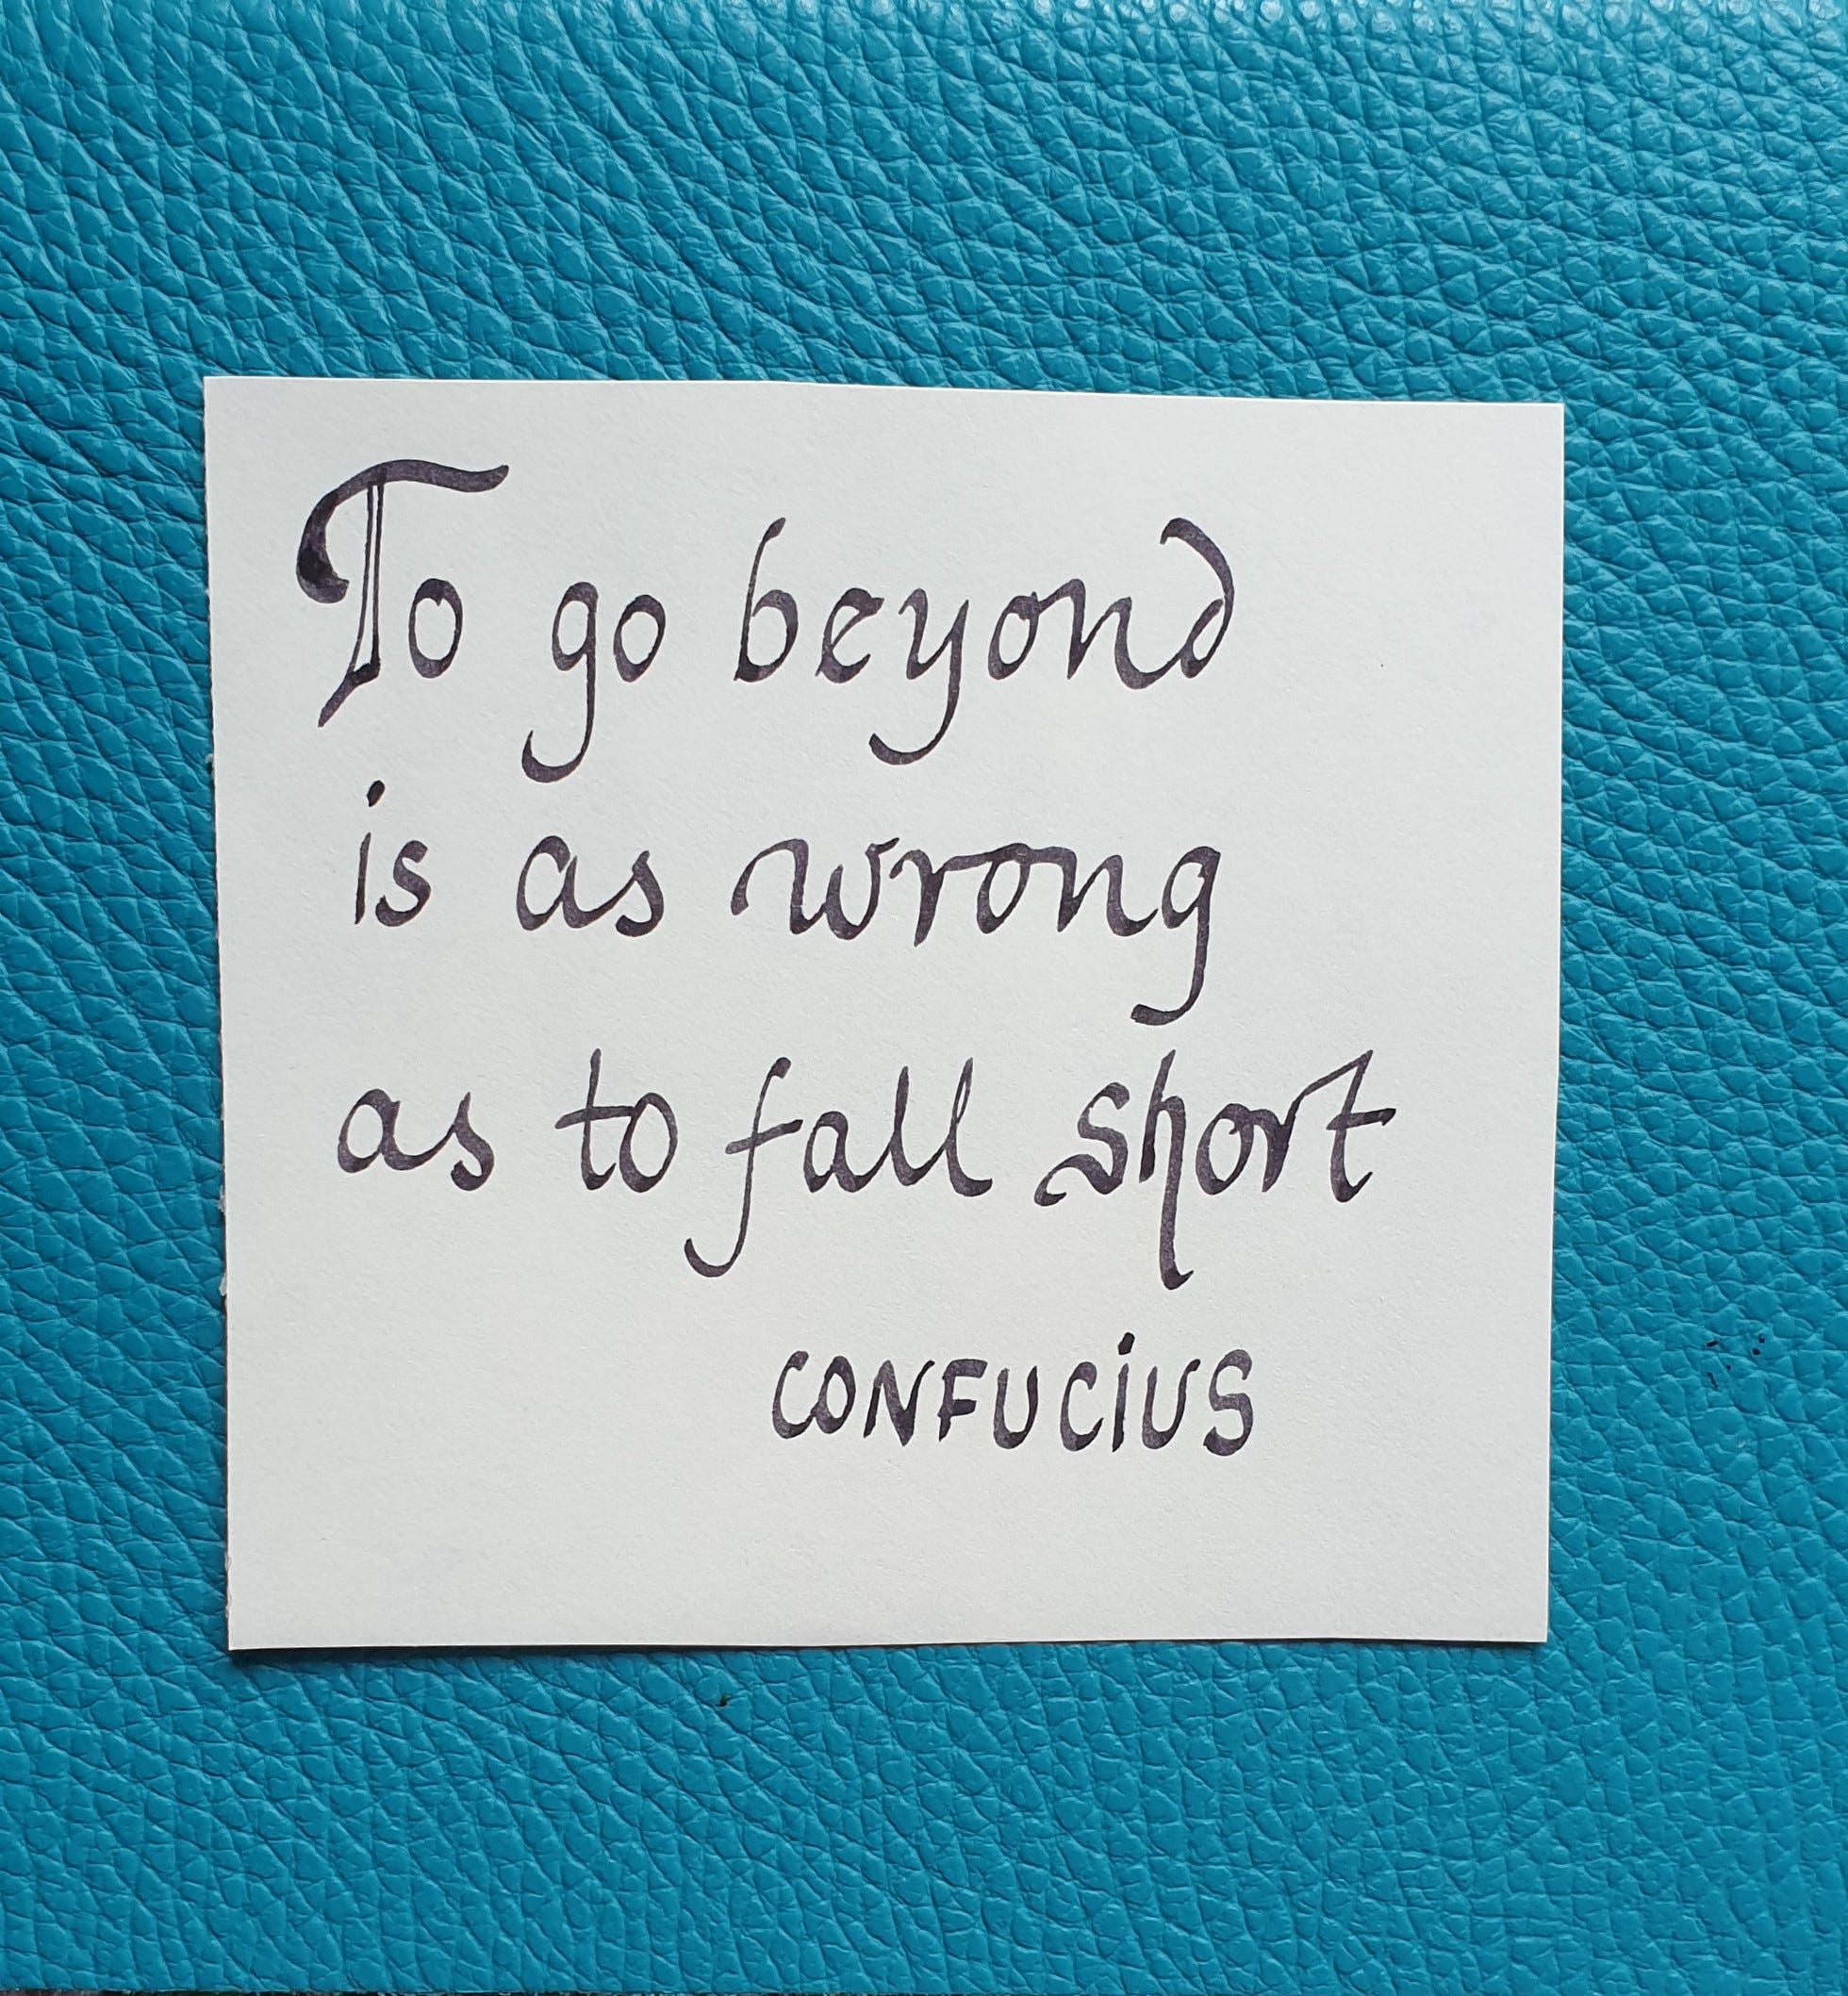 To go beyond
is as wrong
as to fall short
CONFUCiUS